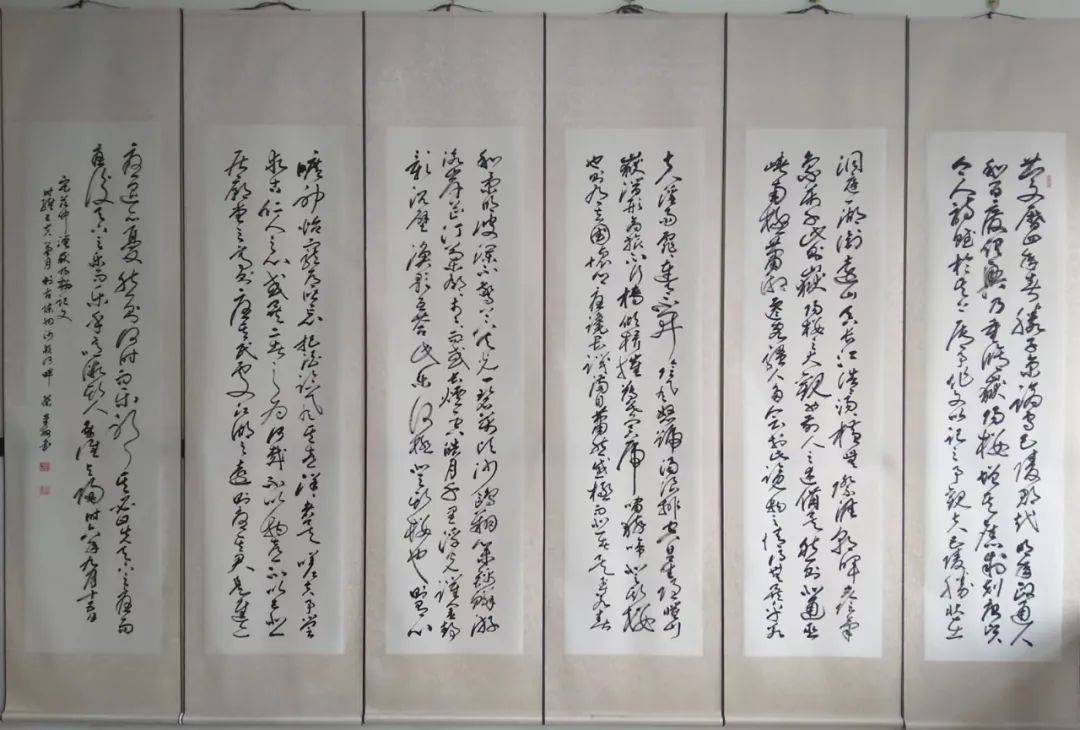 慶曆四年春滕子京謫守巴陵郡越明年政通人
和百廢俱興乃重修嶽陽樓增其舊制刻唐賢
今人詩賦於其上屬予作文以記之予觀夫巴陵勝狀在
洞庭一湖銜遠山吞長江浩浩湯湯橫無際涯朝暉夕陰氣
象萬千此則嶽陽樓之大觀也前人之述備矣然則北通巫
峽南極瀟湘遷客騷人多會於此覽物之情得無異乎若
夫淫雨霏霏連月不開陰風怒號濁浪排空日星隱曜山
嶽潛形商旅不行檣傾楫摧薄暮冥冥虎嘯猿啼登斯樓
也則有去國懷鄉憂讒畏譏滿目蕭然感極而悲者矣至若春
和景明波瀾不驚上下天光一碧萬頃沙鷗翔集錦鱗游
泳岸芷汀蘭郁郁青青而或長煙一空皓月千里浮光躍金靜
影沉璧漁歌互答此樂何極登斯樓也則有心
曠神怡寵辱皆忘把酒臨風其喜洋洋者矣嗟夫予嘗
求古仁人之心或異二者之為何哉不以物喜不以己悲
居廟堂之高則憂其民處江湖之遠則憂其君是進亦
憂退亦憂然則何時而樂耶其必曰先天下之憂而
憂後天下之樂而樂乎噫微斯人吾誰與歸時六年九月十五日
宋范仲淹嶽陽樓記文